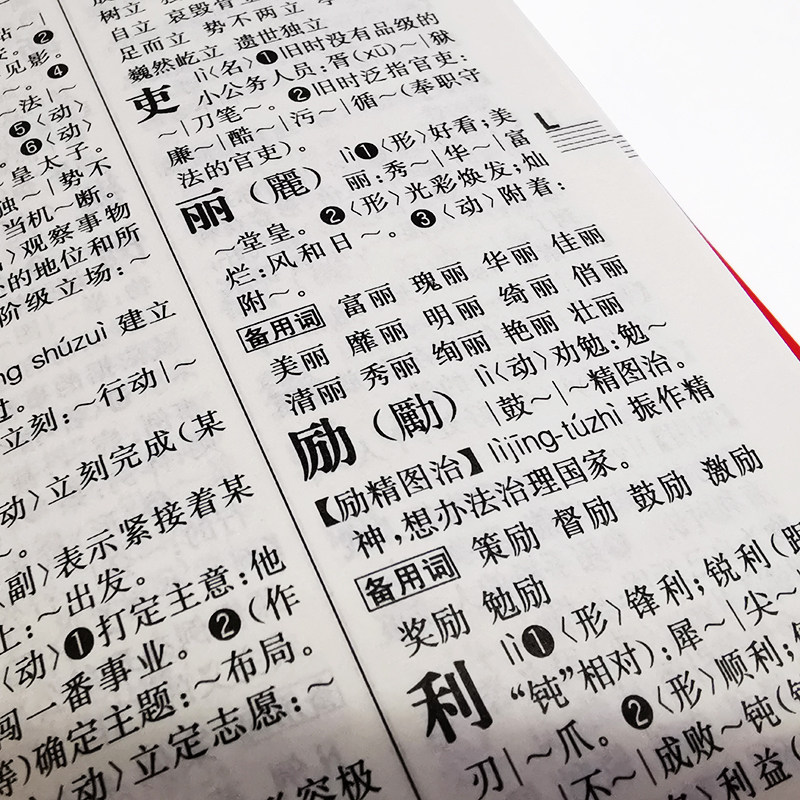 占～|
。❷
见影。
～。❹
～法|～
❺〈动〉
❻〈动〉
皇太子。
独～|势不
当机～断。
〉观察事物
的地位和所
阶级立场：～
ng shúzuì 建立
过。
立刻：～行动|～
动〉立刻完成（某
～。
副〉表示紧接着某
上：～出发。
〈动〉❶打定主意：他
闯一番事业。❷（作
等）确定主题：～布局。
〈动〉立定志愿：～
容极
树立
自立 哀毁骨立
足而立 势不两立
巍然屹立 遗世独立
吏 lì〈名〉❶旧时没有品级的
小公务人员：胥（xū）～|狱
～|刀笔～。❷旧时泛指官吏：
廉～|酷～|污～|循～（奉职守
法的官吏）。
丽（麗） lì❶〈形〉好看；美
丽：秀～|华～|富
～堂皇。❷〈形〉光彩焕发；灿
烂：风和日～。❸〈动〉附着：
附～。
备用词 富丽 瑰丽 华丽 佳丽
美丽 靡丽 明丽 绮丽 俏丽
清丽 秀丽 绚丽 艳丽 壮丽
励（勵） lì〈动〉劝勉：勉～
|鼓～|～精图治。
【励精图治】lìjīng-túzhì 振作精
神，想办法治理国家。
备用词 策励 督励 鼓励 激励
奖励 勉励
利 lì❶〈形〉锋利；锐利（跟
“钝”相对）：犀～|尖～
刃|～爪。❷〈形〉顺利；
|不～|成败～钝（
〉利益（
L